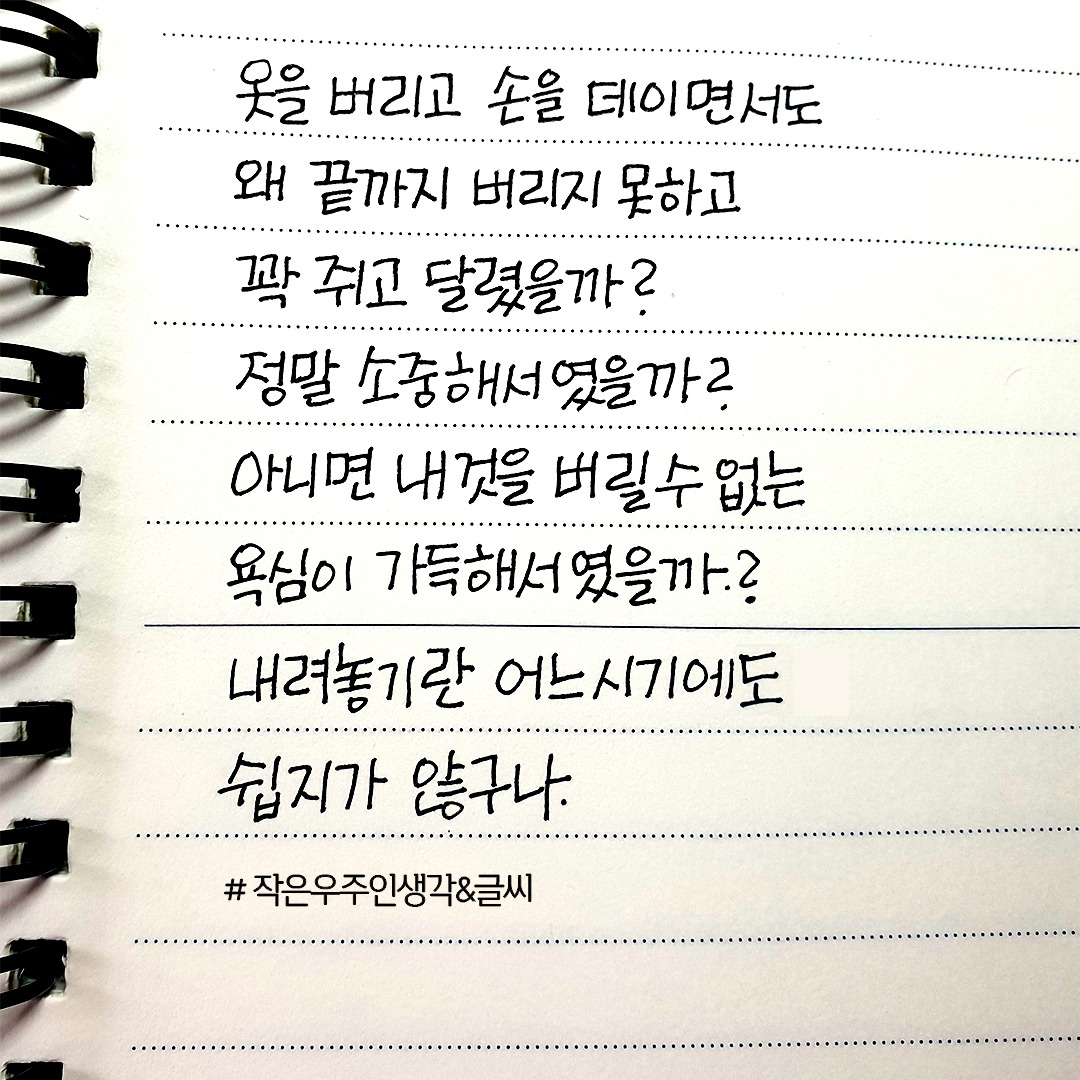 옷을 버리고 손을 데이면서도
왜 끝까지 버리지 못하고
꽉 쥐고 달렸을까?
정말 소중해서였을까?
아니면 내것을 버릴수 없는
욕심이 가득해서였을까.?
내려놓기란 어느시기에도
쉽지가 않구나.
# 작은우주인생각&글씨